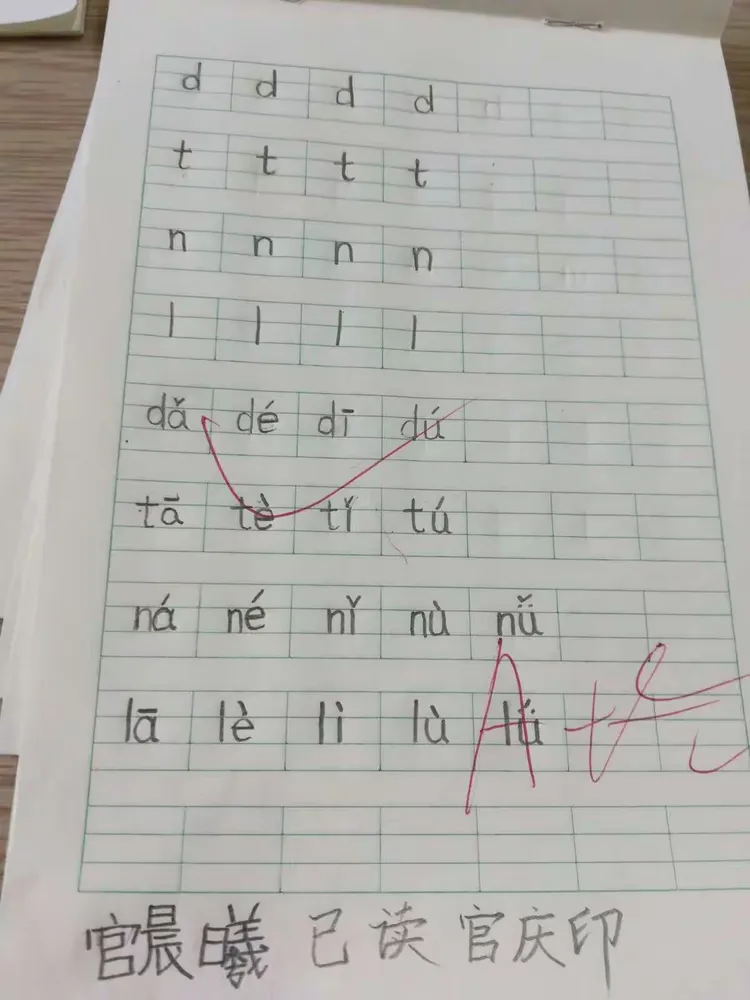 d d d d
t t t t
n n n n
l l l l
dǎ dé dī dú
tā tè tǐ tú
ná né nǐ nù nǚ
lā lè lì lù
A+
官晨曦 已读 官庆印